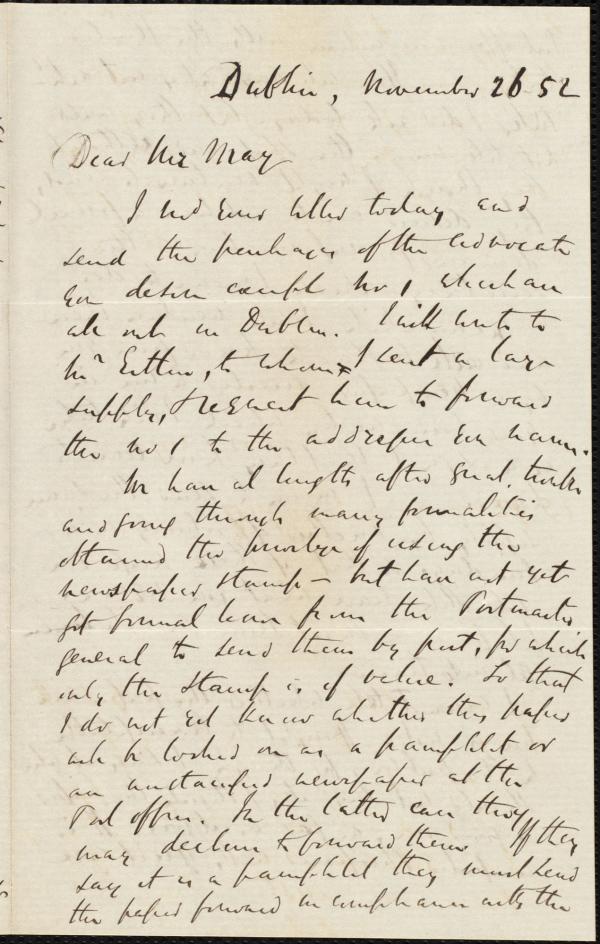 Dublin, November 26 52
Dear Mr May
I recd your letter today and
send the packages of the Advocate
you desire except No 1, which are
all out in Dublin. I will write to
Mr Estlin, to whom I sent a large
supply, & request him to forward
the No 1 to the addresses you name.
We have at length after great trouble
and going through many formalities
obtained the privilege of using the
newspaper stamp – but have not yet
got formal leave from the Postmaster
general to send them by post, for which
only the stamp is of value. So that
I do not yet know whether this paper
will be looked on as a pamphlet or
an unstamped newspaper at the
Post office. In the latter case they
may decline to forward them. If they
say it is a pamphlet they must send
the paper forward in compliance with the